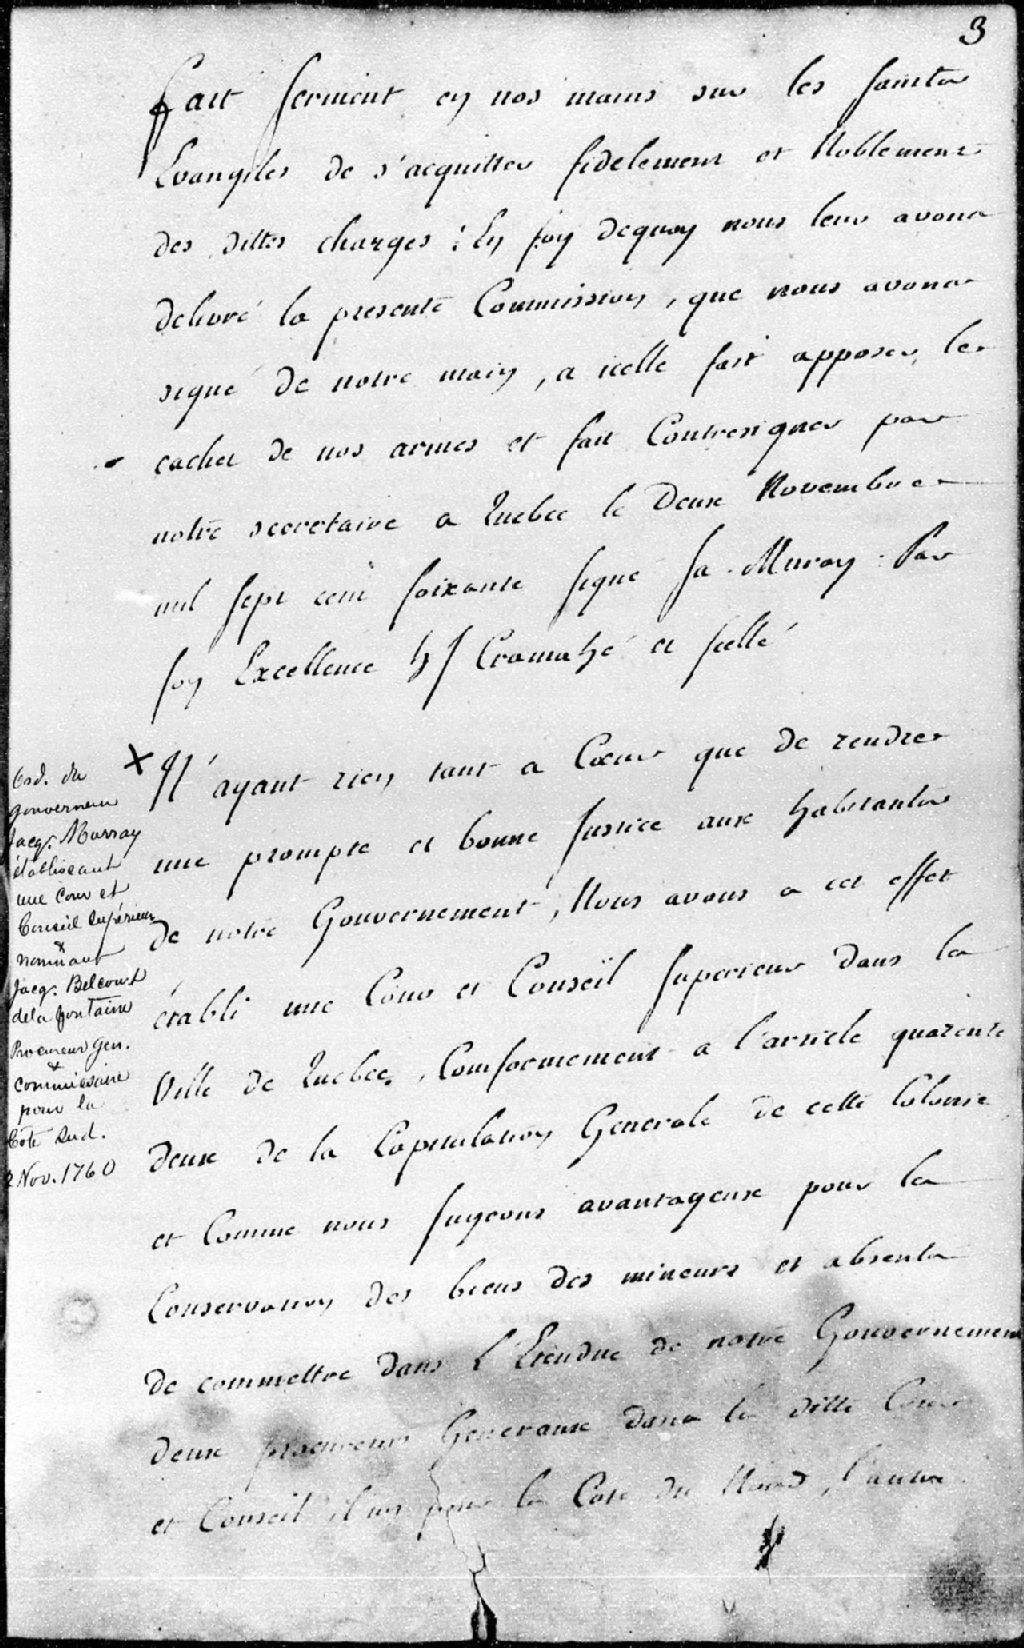 3
fait serment en nos mains sur les saints
Evangiles de s'acquitter fidelement et Noblement
des dittes charges : En foy dequoy nous leur avons
delivré la presente Commission, que nous avons
signé de notre main, a icelle fait apposer le
cachet de nos armes et fait Contresigner par
notre secretaire a Quebec le Deux Novembre
mil sept cent soixante signé Ja. Muray. Par
son Excellence H J Cramahé et scellé
X N'ayant rien tant a Cœur que de rendre
une prompte et bonne Justice aux habitants
de notre Gouvernement, Nous avons a cet effet
établi une Cour et Conseil superieur dans la
Ville de Quebec, Conformement a l'article quarente
deux de la Capitulation Generale de cette Colonie
et Comme nous Jugeons avantageux pour la
Conservation des biens des mineurs et absents
de commettre dans L'Etendue de notre Gouvernement
deux procureurs Generaux dans la ditte Cour
et Conseil, l'un pour la Cote du Nord, l'autre
Ord. du
gouverneur
Jacq. Murray
établissant
une Cour et
Conseil Supérieur
&
nommant
Jacq. Belcourt
de la fontaine
Procureur Gen.
&
commissaire
pour la
Côte Sud.
2 Nov. 1760